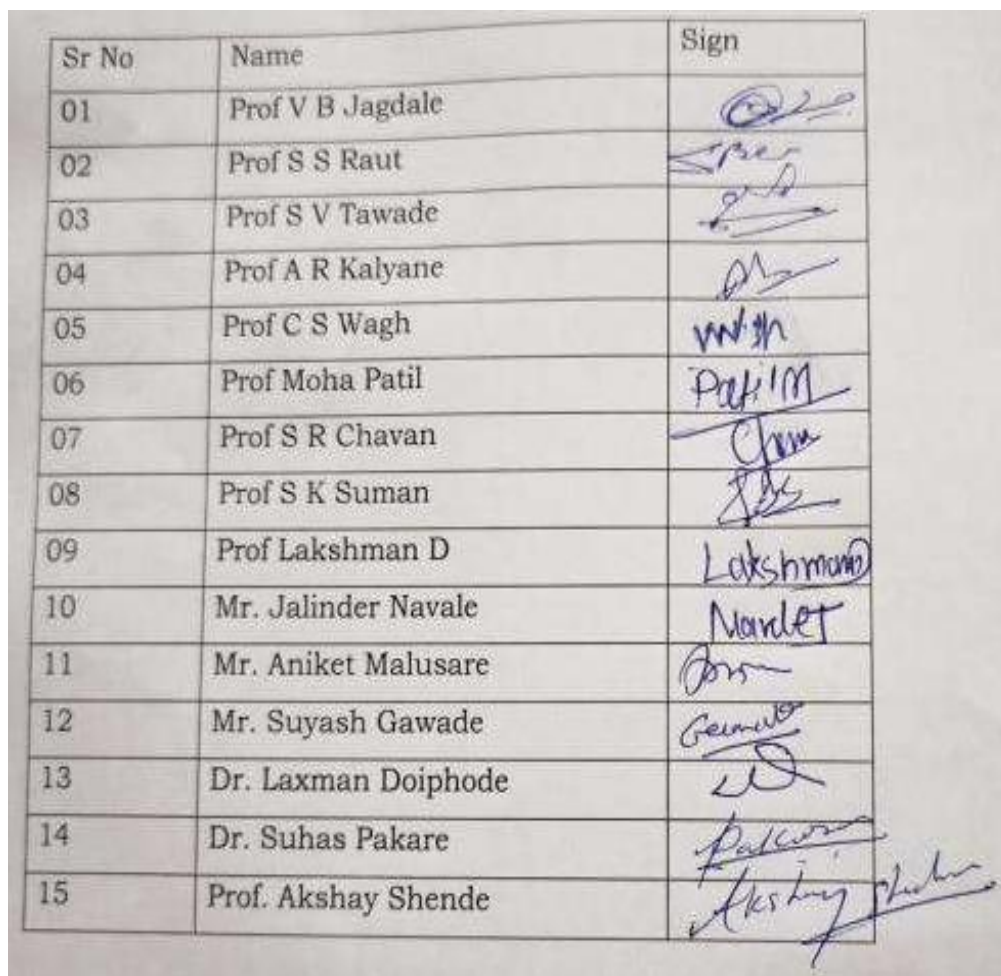 Sr No Name Sign
01 Prof V B Jagdale
02 Prof S S Raut
03 Prof S V Tawade
04 Prof A R Kalyane
05 Prof C S Wagh
06 Prof Moha Patil Patil M
07 Prof S R Chavan
08 Prof S K Suman
09 Prof Lakshman D Lakshman D
10 Mr. Jalinder Navale
11 Mr. Aniket Malusare
12 Mr. Suyash Gawade
13 Dr. Laxman Doiphode
14 Dr. Suhas Pakare
15 Prof. Akshay Shende Akshay